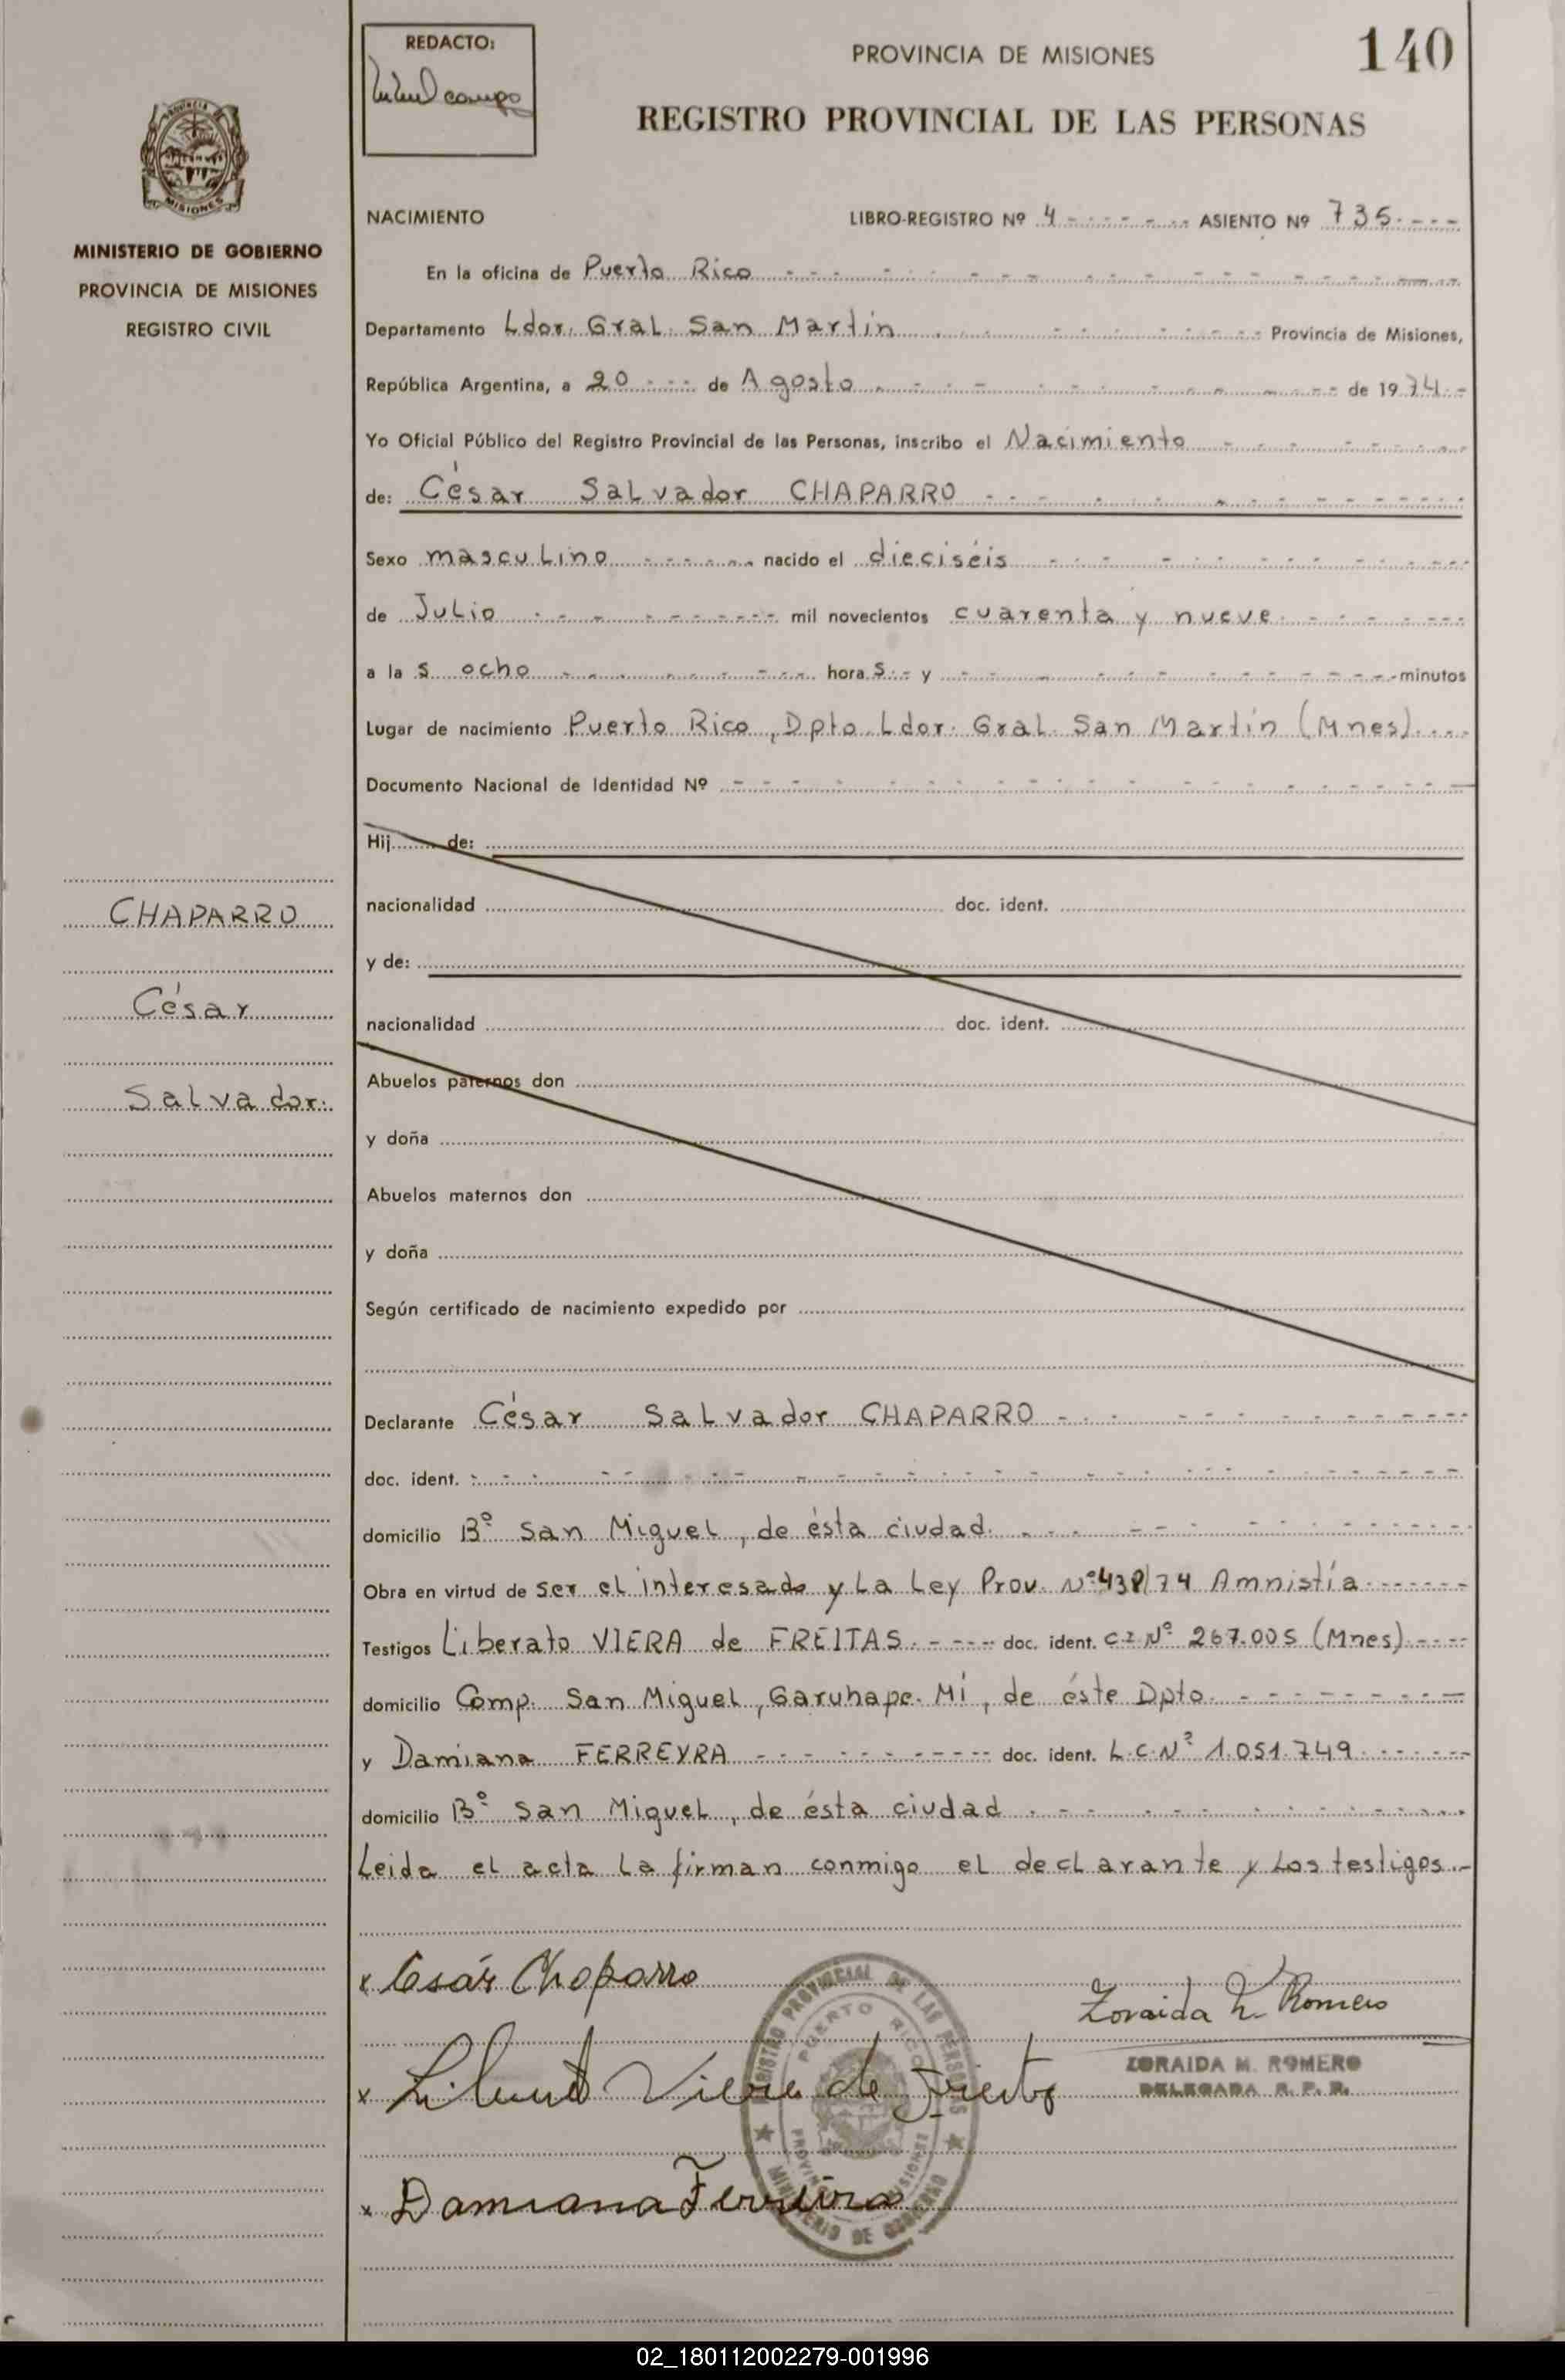 REDACTO:
PROVINCIA DE MISIONES
140
REGISTRO PROVINCIAL DE LAS PERSONAS
MISIONES
MINISTERIO DE GOBIERNO
PROVINCIA DE MISIONES
REGISTRO CIVIL
NACIMIENTO LIBRO-REGISTRO Nº 4 ASIENTO Nº 735
En la oficina de Puerto Rico
Departamento Ldor. Gral. San Martín Provincia de Misiones,
República Argentina, a 20 de Agosto de 1974
Yo Oficial Público del Registro Provincial de las Personas, inscribo el Nacimiento
de: César Salvador CHAPARRO
Sexo masculino nacido el dieciséis
de Julio mil novecientos cuarenta y nueve
a las ocho horas y minutos
Lugar de nacimiento Puerto Rico, Dpto Ldor. Gral. San Martín (Mnes)
Documento Nacional de Identidad Nº
Hij de:
nacionalidad doc. ident.
y de:
nacionalidad doc. ident.
Abuelos paternos don
y doña
Abuelos maternos don
y doña
Según certificado de nacimiento expedido por
CHAPARRO
César
Salvador.
Declarante César Salvador CHAPARRO
doc. ident.
domicilio Bº San Miguel, de ésta ciudad.
Obra en virtud de ser el interesado y La Ley Prov. Nº 438/74 Amnistía
Testigos Liberato VIERA de FREITAS. doc. ident. C.I Nº 267.005 (Mnes)
domicilio Comp. San Miguel, Garuhape. Mí, de éste Dpto.
y Damiana FERREYRA doc. ident. L.C.Nº 1.051.749
domicilio Bº San Miguel, de ésta ciudad
Leida el acta la firman conmigo el declarante y los testigos.-
x Cesár Chaparro
Zoraida M. Romero
ZORAIDA M. ROMERO
DELEGADA R. P. P.
x Viera de
x Damiana Ferreira
REGISTRO PROVINCIAL DE LAS PERSONAS
PUERTO RICO
PROVINCIA MISIONES
MINISTERIO DE GOBIERNO
02_180112002279-001996